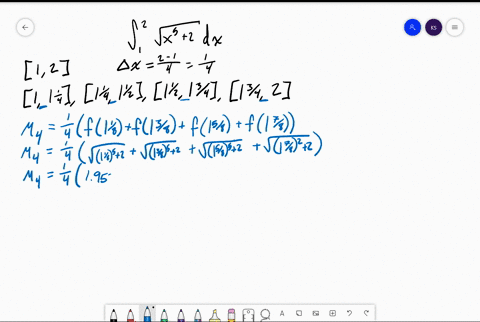 ∫₁² √(x⁵+2) dx
[1, 2] Δx = (2-1)/4 = 1/4
[1, 1 1/4], [1 1/4, 1 1/2], [1 1/2, 1 3/4], [1 3/4, 2]
M₄ = 1/4 (f(1 1/8) + f(1 3/8) + f(1 5/8) + f(1 7/8))
M₄ = 1/4 (√((1 1/8)⁵+2) + √((1 3/8)⁵+2) + √((1 5/8)⁵+2) + √((1 7/8)²+2))
M₄ = 1/4 (1.95
KS
A